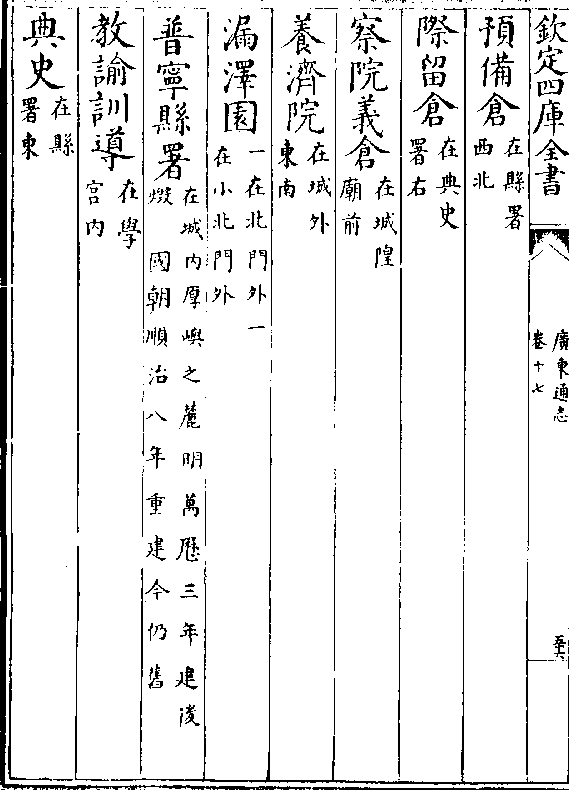 欽定四庫全書
廣東通志
卷十七
預備倉在縣署西北
際留倉在典史署右
察院義倉在城隍廟前
養濟院在城外東南
漏澤園一在北門外一在小北門外
普寧縣署在城内厚嶼之麓明萬歷三年建後燬　國朝順治八年重建今仍舊
教諭訓導在學宫内
典史在縣署東